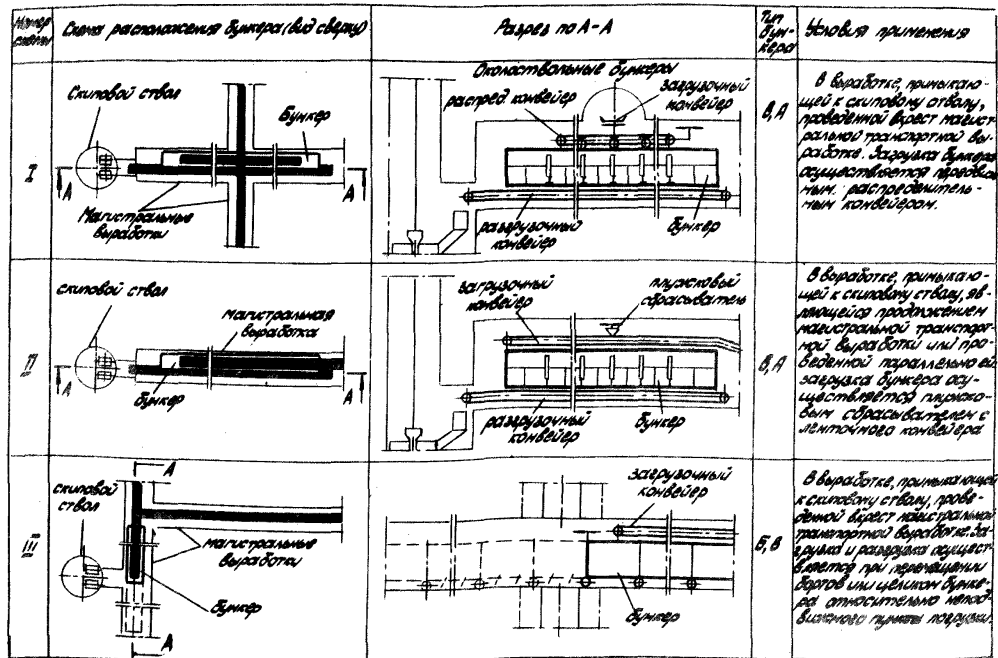 Номер схемы
Схема расположения бункера (вид сверху)
Разрез по А-А
Тип бун-
кера
Условия применения
I
Скиповой ствол
Бункер
А
А
Магистральные
выработки
Околоствольные бункеры
распред. конвейер
загрузочный
конвейер
разгрузочный
конвейер
бункер
В, А
В выработке, примыкаю-
щей к скиповому стволу,
проведенной вкрест магист-
ральной транспортной вы-
работке. Загрузка бункера
осуществляется передвиж-
ным распределитель-
ным конвейером.
II
скиповой ствол
магистральная
выработка
А
бункер
А
загрузочный
конвейер
плужковый
сбрасыватель
разгрузочный
конвейер
бункер
В, А
В выработке, примыкаю-
щей к скиповому стволу, яв-
ляющейся продолжением
магистральной транспорт-
ной выработки или про-
веденной параллельно ей.
загрузка бункера осу-
ществляется плужко-
вым сбрасывателем с
ленточного конвейера
III
А
скиповой
ствол
магистральные
выработки
бункер
А
загрузочный
конвейер
бункер
Б, В
В выработке, примыкающей
к скиповому стволу, прове-
денной вкрест магистральной
транспортной выработке. За-
грузка и разгрузка осущест-
вляется при перемещении
бортов или целиком бунке-
ра относительно непод-
вижного пункта погрузки.